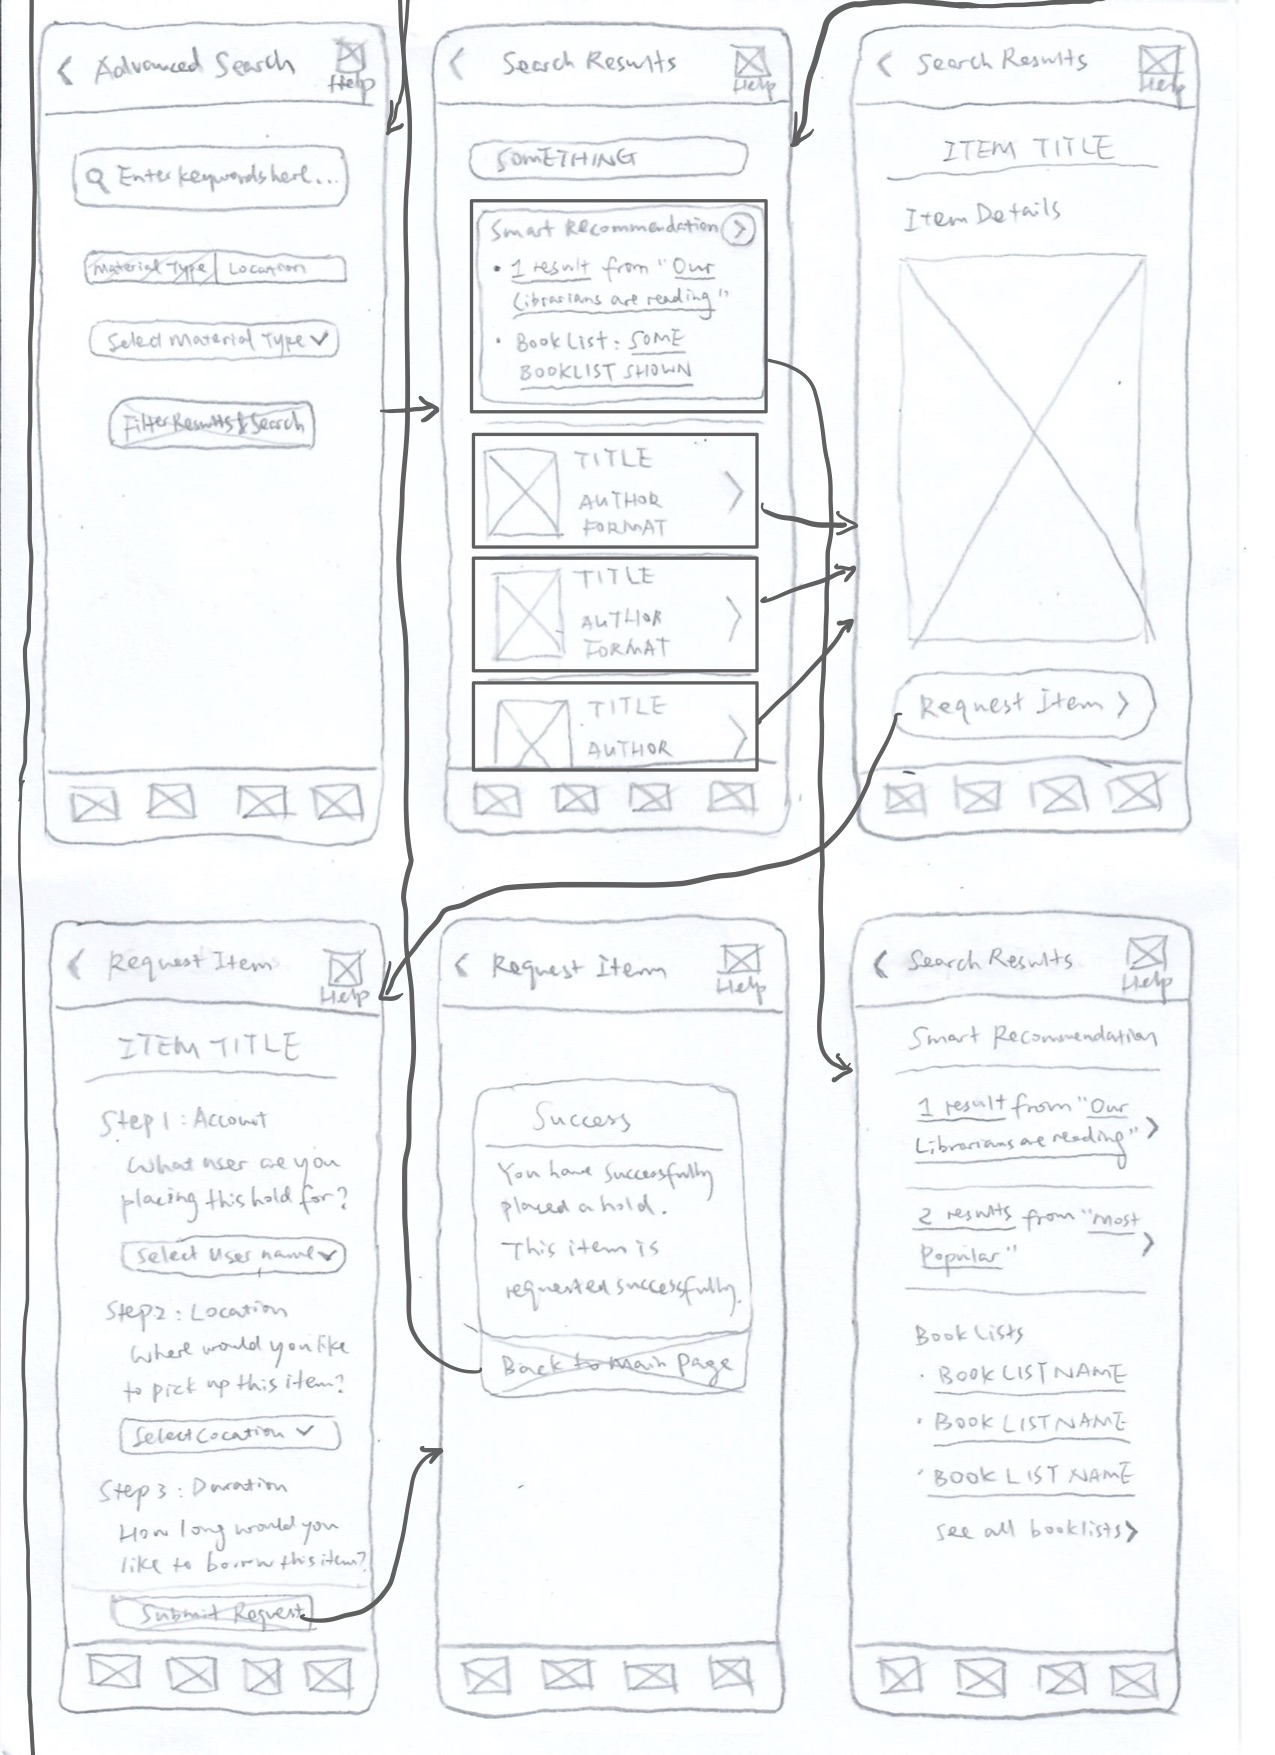 Advanced Search
Help
Enter keywords here...
Material Type
Location
Select Material Type
Filter Results & Search
Search Results
Help
SOMETHING
Smart Recommendation
• 1 result from "Our
Librarians are reading"
• Book List: SOME
BOOKLIST SHOWN
TITLE
AUTHOR
FORMAT
TITLE
AUTHOR
FORMAT
TITLE
AUTHOR
Search Results
Help
ITEM TITLE
Item Details
Request Item >
Request Item
Help
ITEM TITLE
Step 1: Account
What user are you
placing this hold for?
Select User name
Step 2: Location
Where would you like
to pick up this item?
Select Location
Step 3: Duration
How long would you
like to borrow this item?
Submit Request
Request Item
Help
Success
You have successfully
placed a hold.
This item is
requested successfully.
Back to Main Page
Search Results
Help
Smart Recommendation
1 result from "Our
Librarians are reading" >
2 results from "Most
Popular" >
Book Lists
• BOOK LIST NAME
• BOOK LIST NAME
• BOOK LIST NAME
see all booklists >